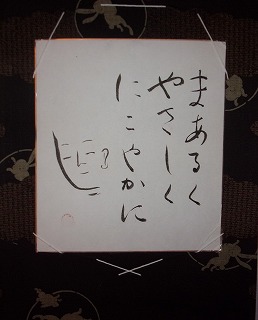 まあるく
やさしく
にこやかに